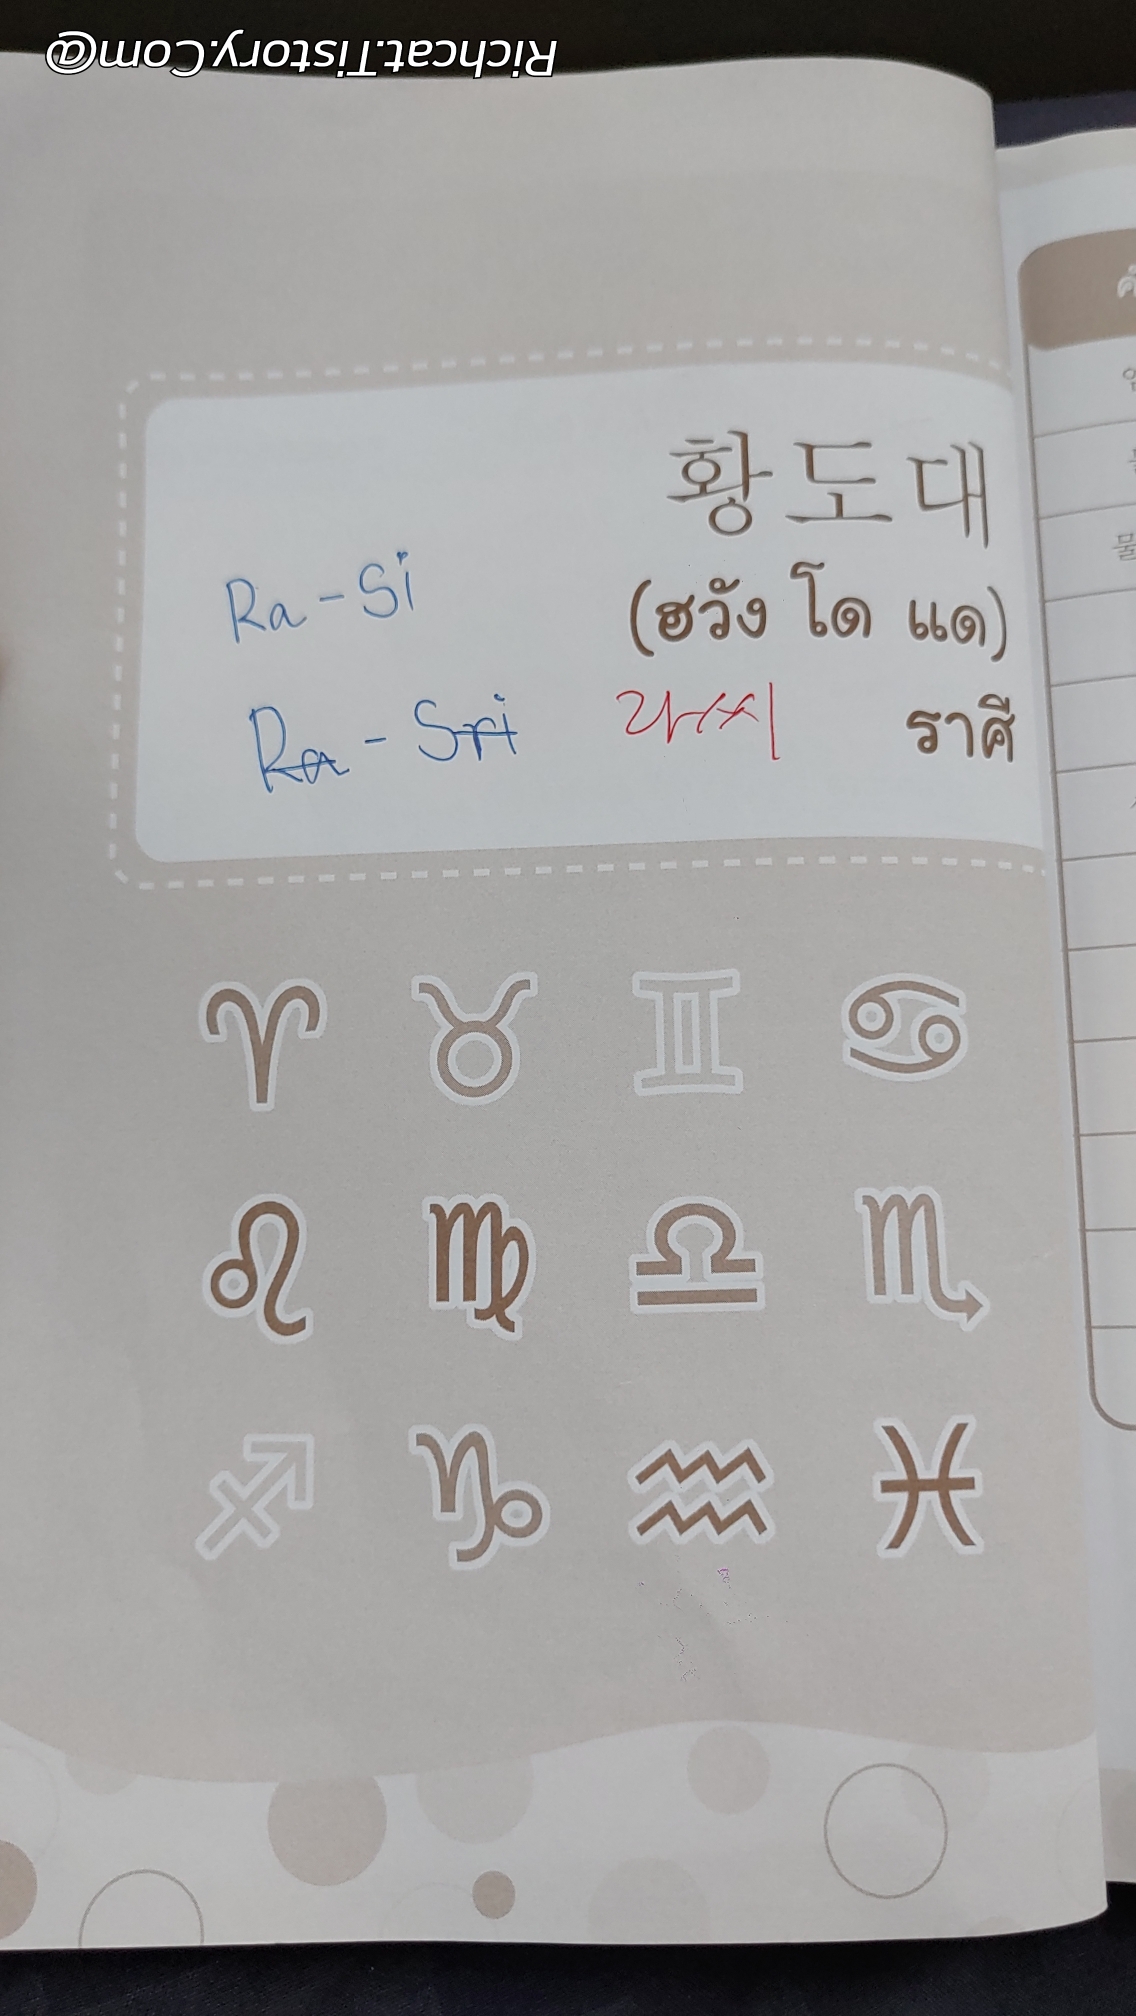 Richcat.Tistory.Com@
황도대
(ฮวัง โด แด)
Ra-Si
라씨
ราศี
Ra-Sri